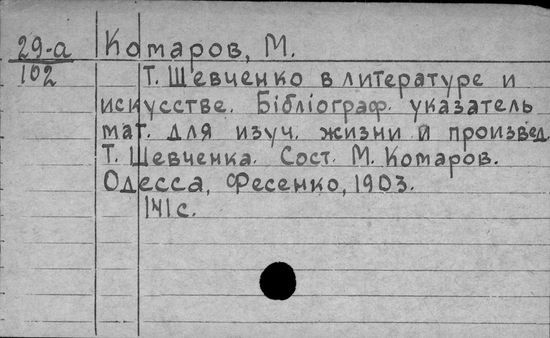 29-а Комаров, М.
102 Т. Шевченко в литературе и
искусстве. Бібліограф. указатель
мат. для изуч. жизни и произвед.
Т. Шевченка. Сост. М. Комаров.
Одесса, Фесенко, 1903.
141 с.